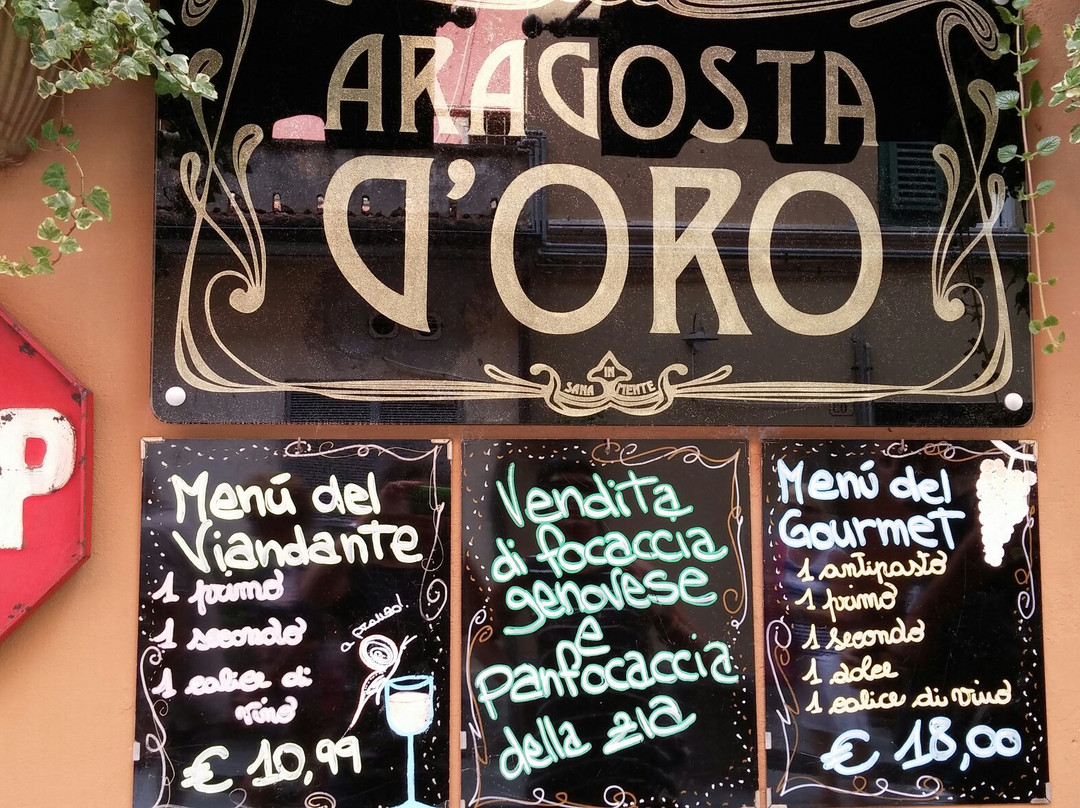 ARAGOSTA
D'ORO
SANA IN MENTE
P
Menú del
Viandante
1 primo
1 secondo
a pranzo!
1 calice di
vino
€ 10,99
Vendita
di focaccia
genovese
e
panfocaccia
della zia
Menú del
Gourmet
1 antipasto
1 primo
1 secondo
1 dolce
1 calice di vino
€ 18,00